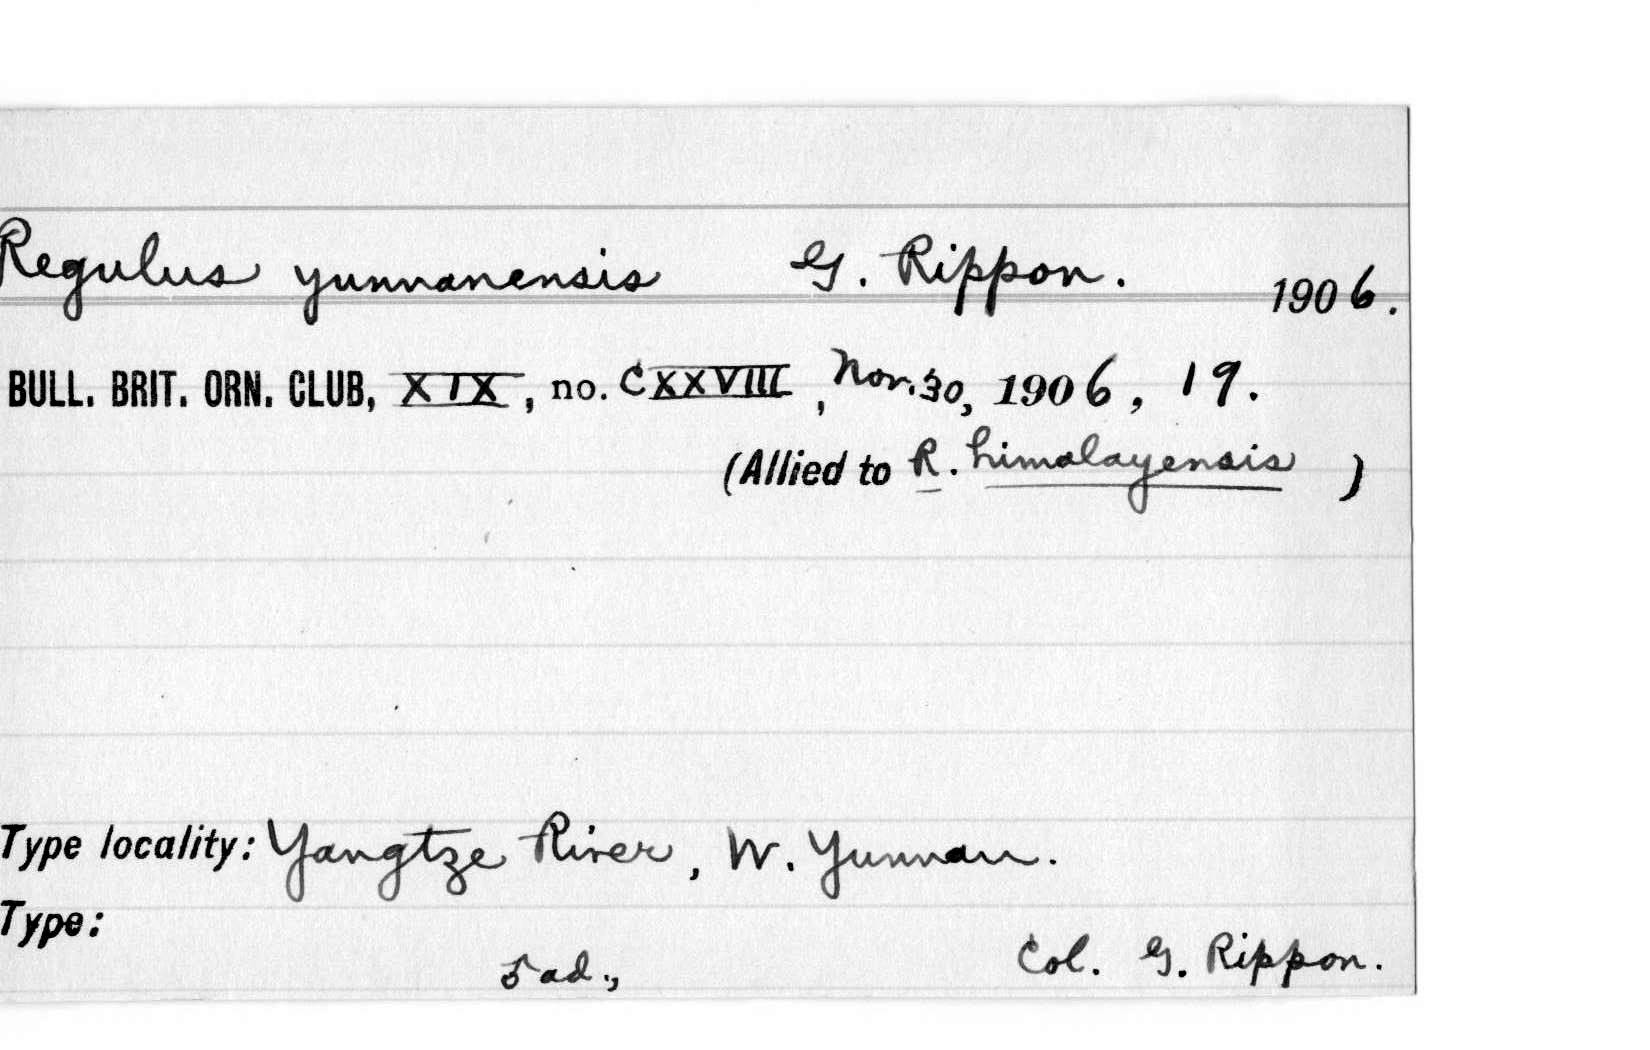 Regulus yunnanensis G. Rippon. 1906.
BULL. BRIT. ORN. CLUB, XIX, no. CXXVIII, Nov. 30, 1906, 19.
(Allied to R. himalayensis )
Type locality: Yangtze River, W. Yunnan.
Type:
♂ ad., Col. G. Rippon.